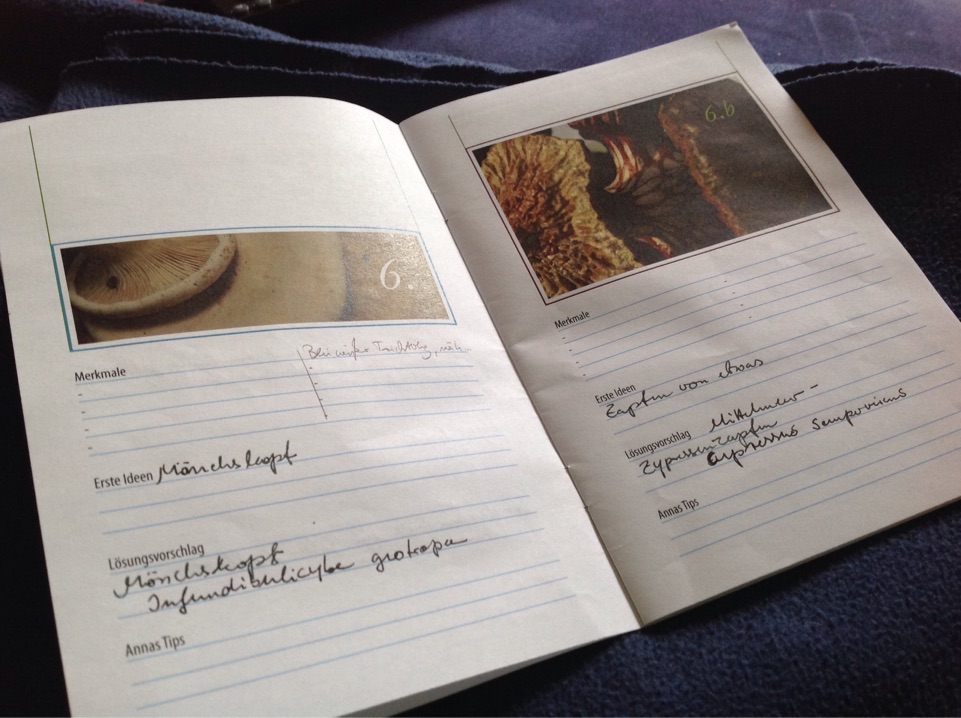 6.
Merkmale
Erste Ideen Mönchskopf
Lösungsvorschlag
Mönchskopf
Infundibulicybe geotropa
Annas Tips
6.b
Merkmale
Erste Ideen
Zapfen von etwas
Lösungsvorschlag Mittelmeer-
Zypressenzapfen
Cupressus sempervirens
Annas Tips